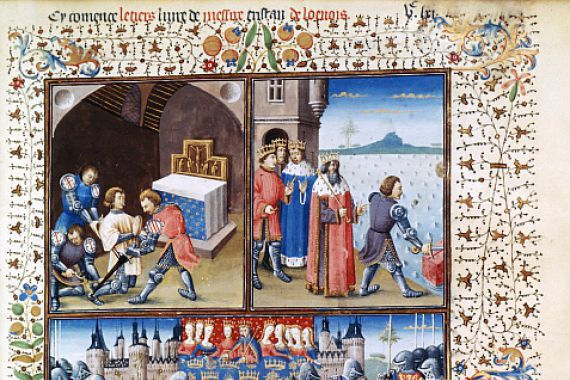 Cy comence letiers liure de messire tristan de loenois.